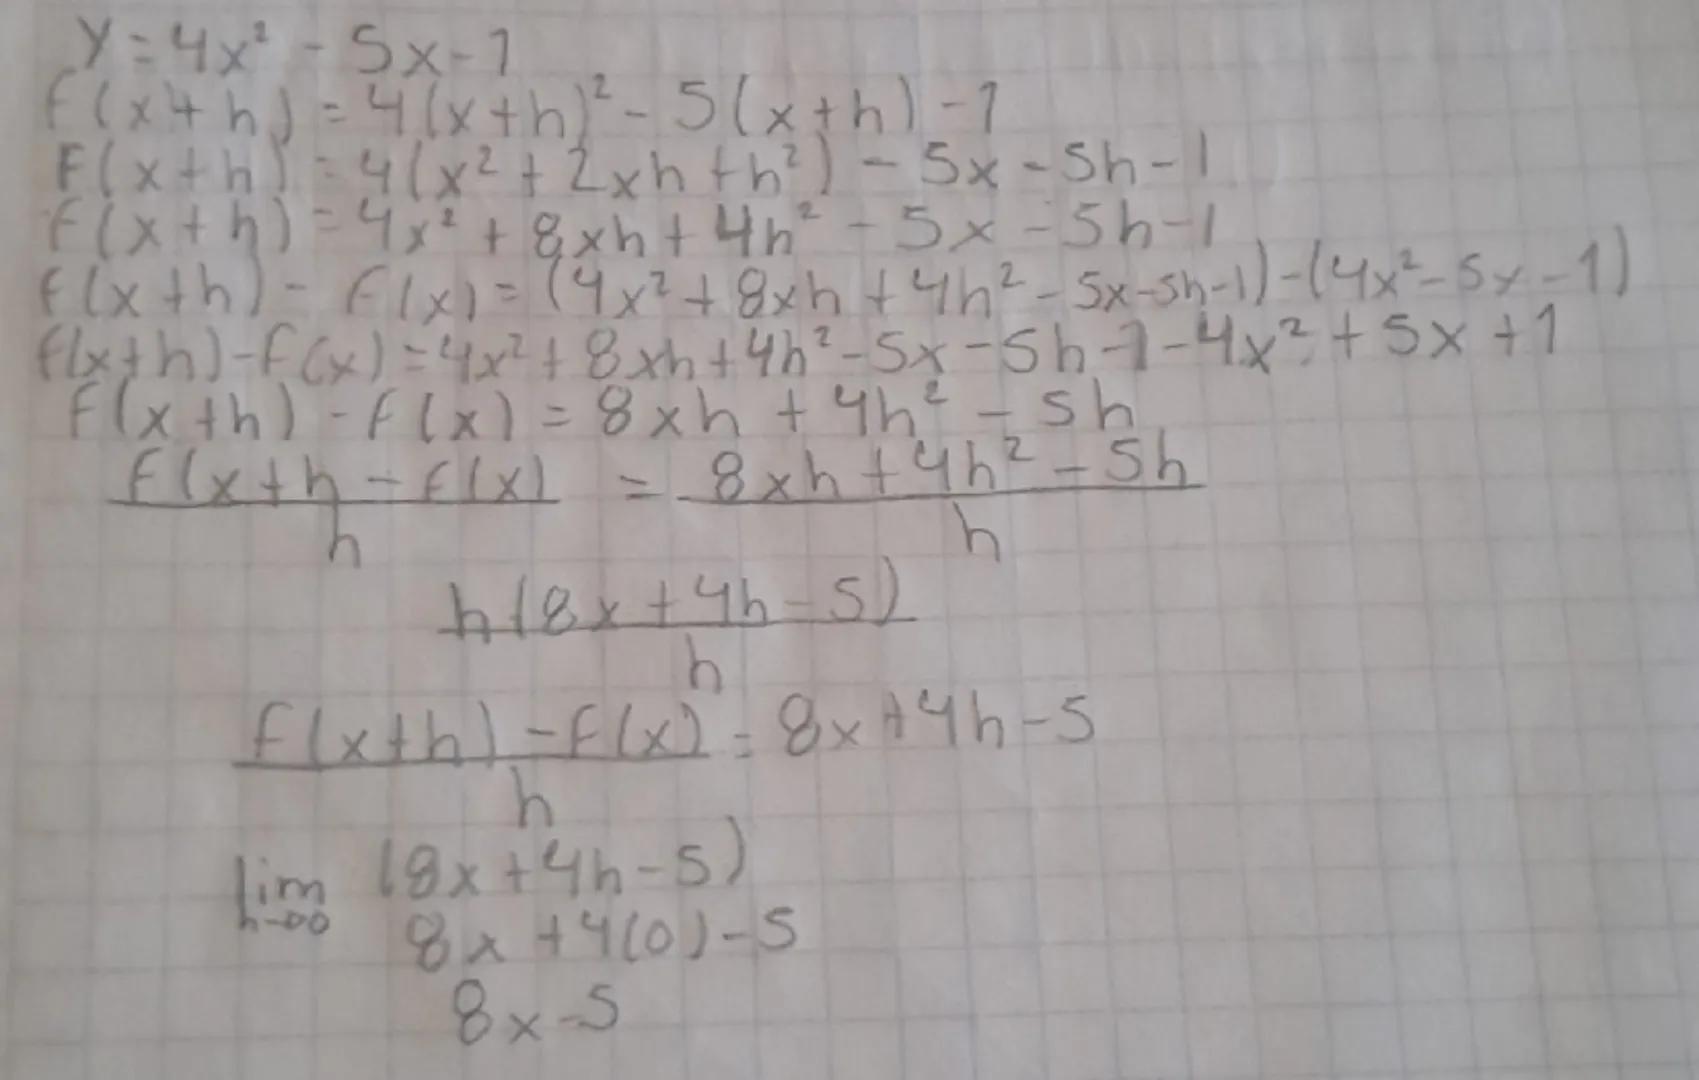 y = 4x² - 5x - 1
f(x+h) = 4(x+h)² - 5(x+h) - 1
F(x+h) = 4(x² + 2xh + h²) - 5x - 5h - 1
f(x+h) = 4x² + 8xh + 4h² - 5x - 5h - 1
f(x+h) - f(x) = (4x² + 8xh + 4h² - 5x - 5h - 1) - (4x² - 5x - 1)
f(x+h) - f(x) = 4x² + 8xh + 4h² - 5x - 5h - 1 - 4x² + 5x + 1
F(x+h) - f(x) = 8xh + 4h² - 5h
f(x+h - f(x) / h = 8xh + 4h² - 5h / h
h(8x + 4h - 5) / h
f(x+h) - f(x) / h = 8x + 4h - 5
lim h→∞ (8x + 4h - 5)
8x + 4(0) - 5
8x - 5